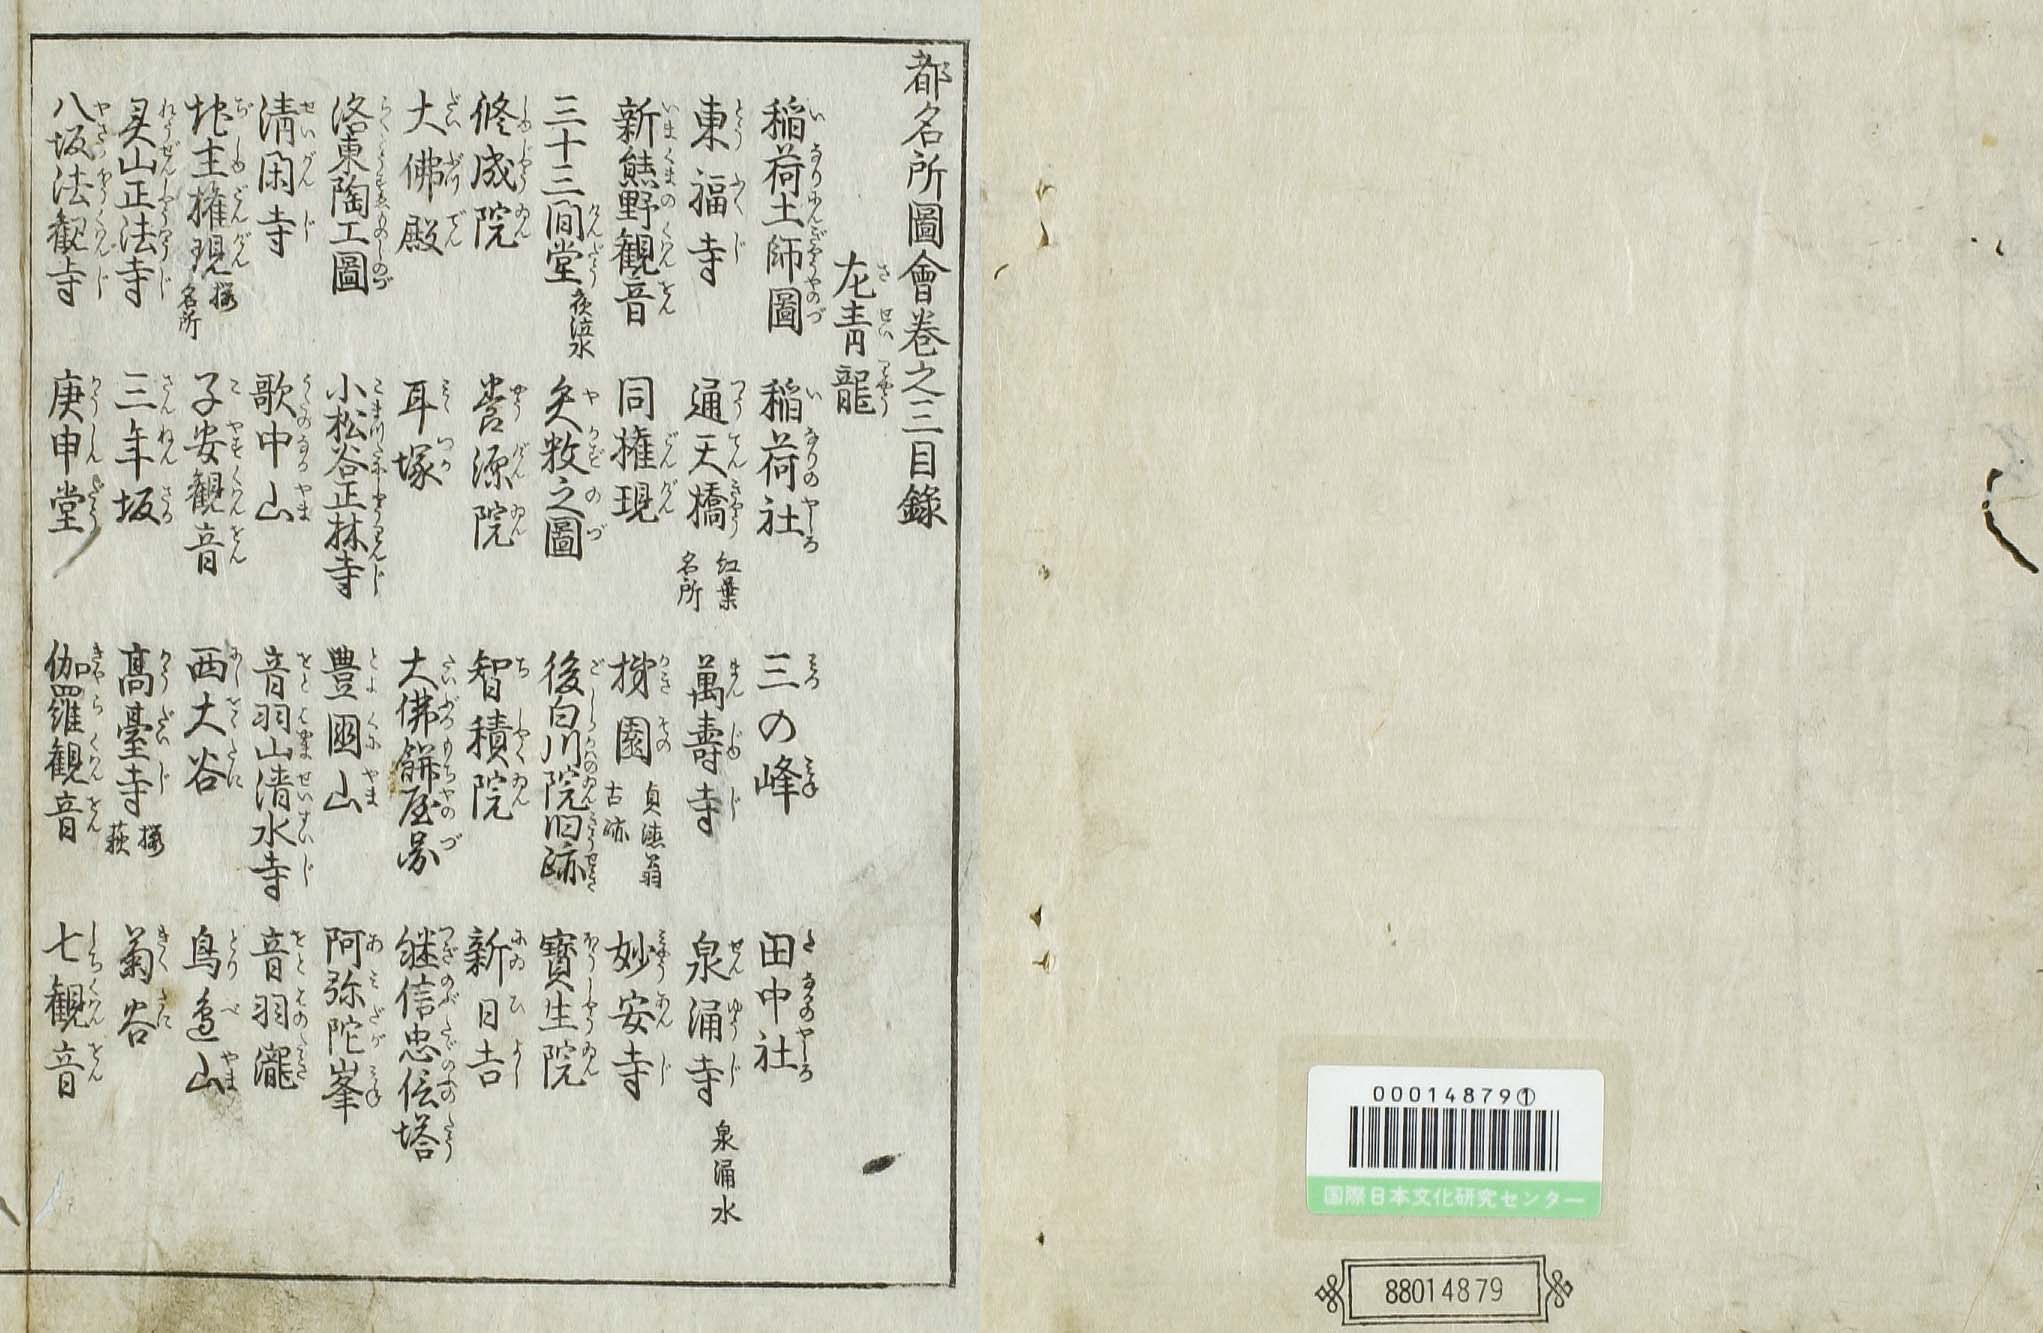 都名所圖會巻之三目錄
左青龍
稲荷土師圖 稲荷社 三の峰 田中社
東福寺 通天橋 紅葉名所 萬壽寺 泉涌寺 泉涌水
新熊野観音 同權現 栬園 貞徳翁古跡 妙安寺
三十三間堂 夜泣水 矢数之圖 後白川院旧跡 寳生院
修成院 養源院 智積院 新日吉
大佛殿 耳塚 大佛餅屋圖 継信忠信塔
洛東陶工圖 小松谷正林寺 豊國山 阿弥陀峯
清閑寺 歌中山 音羽山清水寺 音羽瀧
地主權現 櫻名所 子安観音 西大谷 鳥邉山
灵山正法寺 三年坂 高臺寺 櫻萩 菊谷
八坂法観寺 庚申堂 伽羅観音 七観音
00014879①
国際日本文化研究センター
88014879